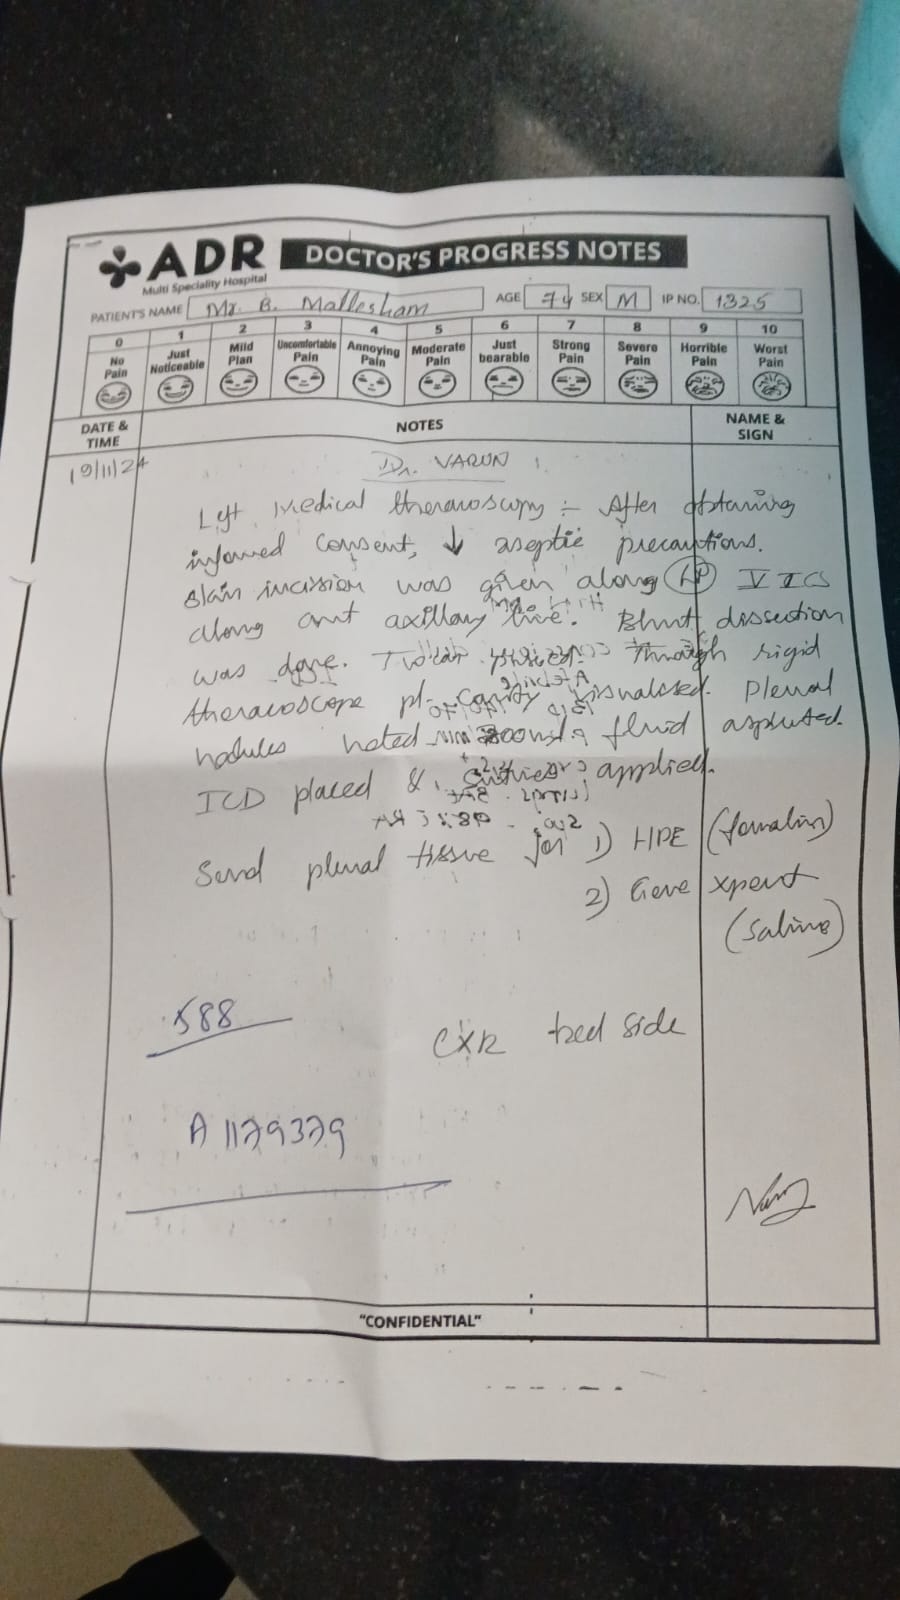 ADR
Multi Speciality Hospital
DOCTOR'S PROGRESS NOTES
PATIENT'S NAME Mr. B. Mallesham AGE 74 SEX M IP NO. 1325
0 1 2 3 4 5 6 7 8 9 10
No Pain Just Noticeable Mild Plan Uncomfortable Pain Annoying Pain Moderate Pain Just bearable Strong Pain Severe Pain Horrible Pain Worst Pain
DATE & TIME NOTES NAME & SIGN
19/11/24 Dr. VARUN
Left Medical thoracoscopy :- After obtaining
informed consent, ↓ aseptic precautions.
skin incision was given along V ICS
along ant axillary line. Blunt dissection
was done. through rigid
thoracoscope pl. cavity visualised. Pleural
nodules noted fluid aspirated.
ICD placed & sutures applied.
Send pleural tissue for 1) HPE (formalin)
2) Gene xpert
(saline)
588
CXR bed side
A1179379
"CONFIDENTIAL"